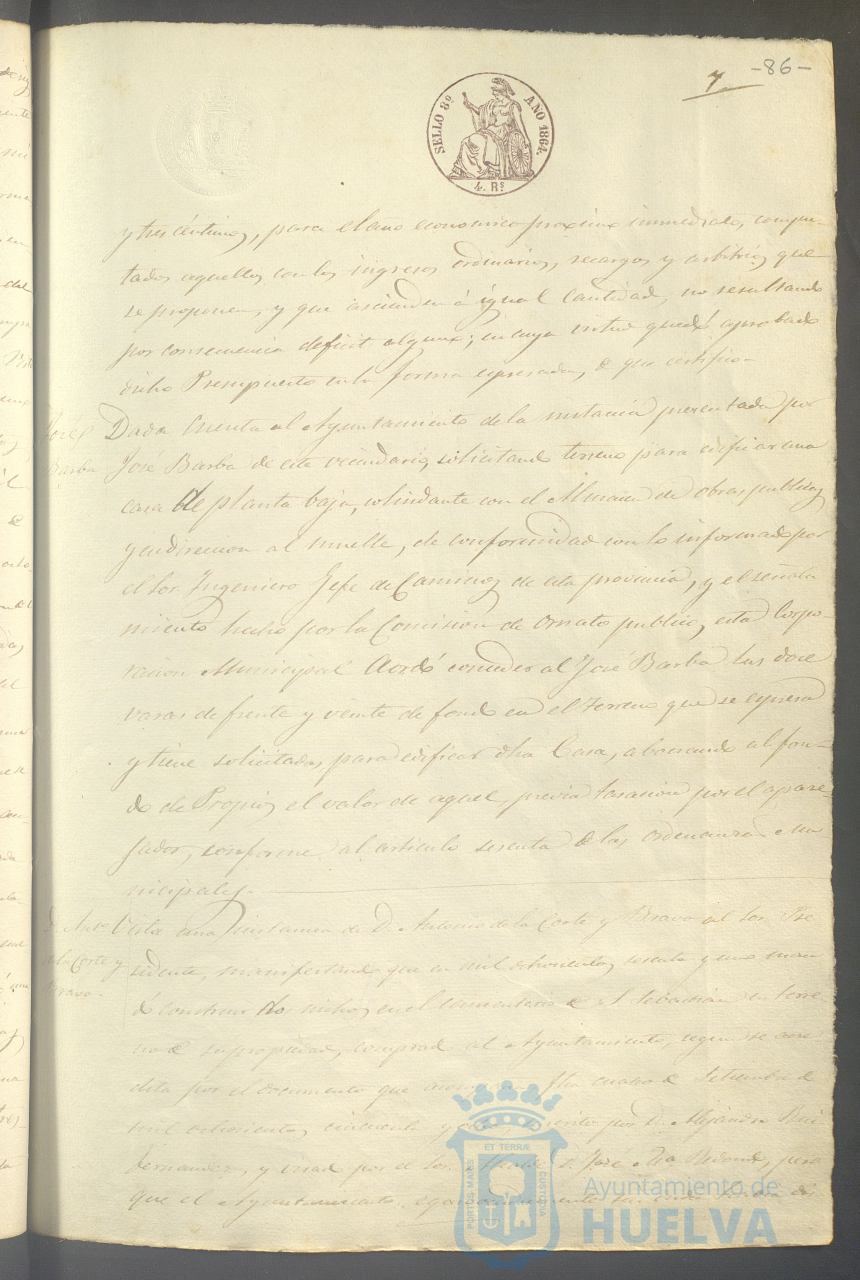 -86-
7
SELLO 8º AÑO 1864.
4. Rs
y tres céntimos, para el año economico proximo inmediato, compu-
tados aquellos con los ingresos ordinarios, recargos y arbitrios que
se proponen, y que ascienden á igual cantidad, no resultando
por consecuencia deficit alguno; en cuya virtud quedó aprobado
dicho Presupuesto en la forma espresada, de que certifico
José Barba
Dada cuenta al Ayuntamiento de la instancia presentada por
José Barba de este vecindario, solicitando terreno para edificar una
casa de planta baja, colindante con el Almacen de obras publicas
y en direccion al muelle, de conformidad con lo informado por
el Sor. Ingeniero Jefe de Caminos de esta provincia, y el señala
miento hecho por la Comision de Ornato publico, esta Corpo-
racion Municipal Acordó conceder al José Barba las doce
varas de frente y veinte de fondo en el terreno que se espresa
y tiene solicitadas, para edificar dha Casa, abonando al fon-
do de Propios el valor de aquel, previa tasacion por el apare-
jador, conforme al articulo sesenta de las ordenanzas Mu
nicipales.
D. Anto. de la Corte y Bravo.
Vista una instancia de D. Antonio de la Corte y Bravo al Sor. Pre
sidente, manifestando que en mil ochocientos sesenta y uno man
dó construir dos nichos en el Cementerio de S. Sebastian en terre
no de su propiedad, comprado al Ayuntamiento, segun se acre
dita por el documento que fha cuatro de Setiembre de
mil ochocientos cincuenta y por D. Alejandro
Fernandez, y visado por el Sor. Alcalde D. José Ma pero
que el Ayuntamiento
ET TERRÆ
PORTUS MARIS
CUSTODIA
Ayuntamiento de
HUELVA